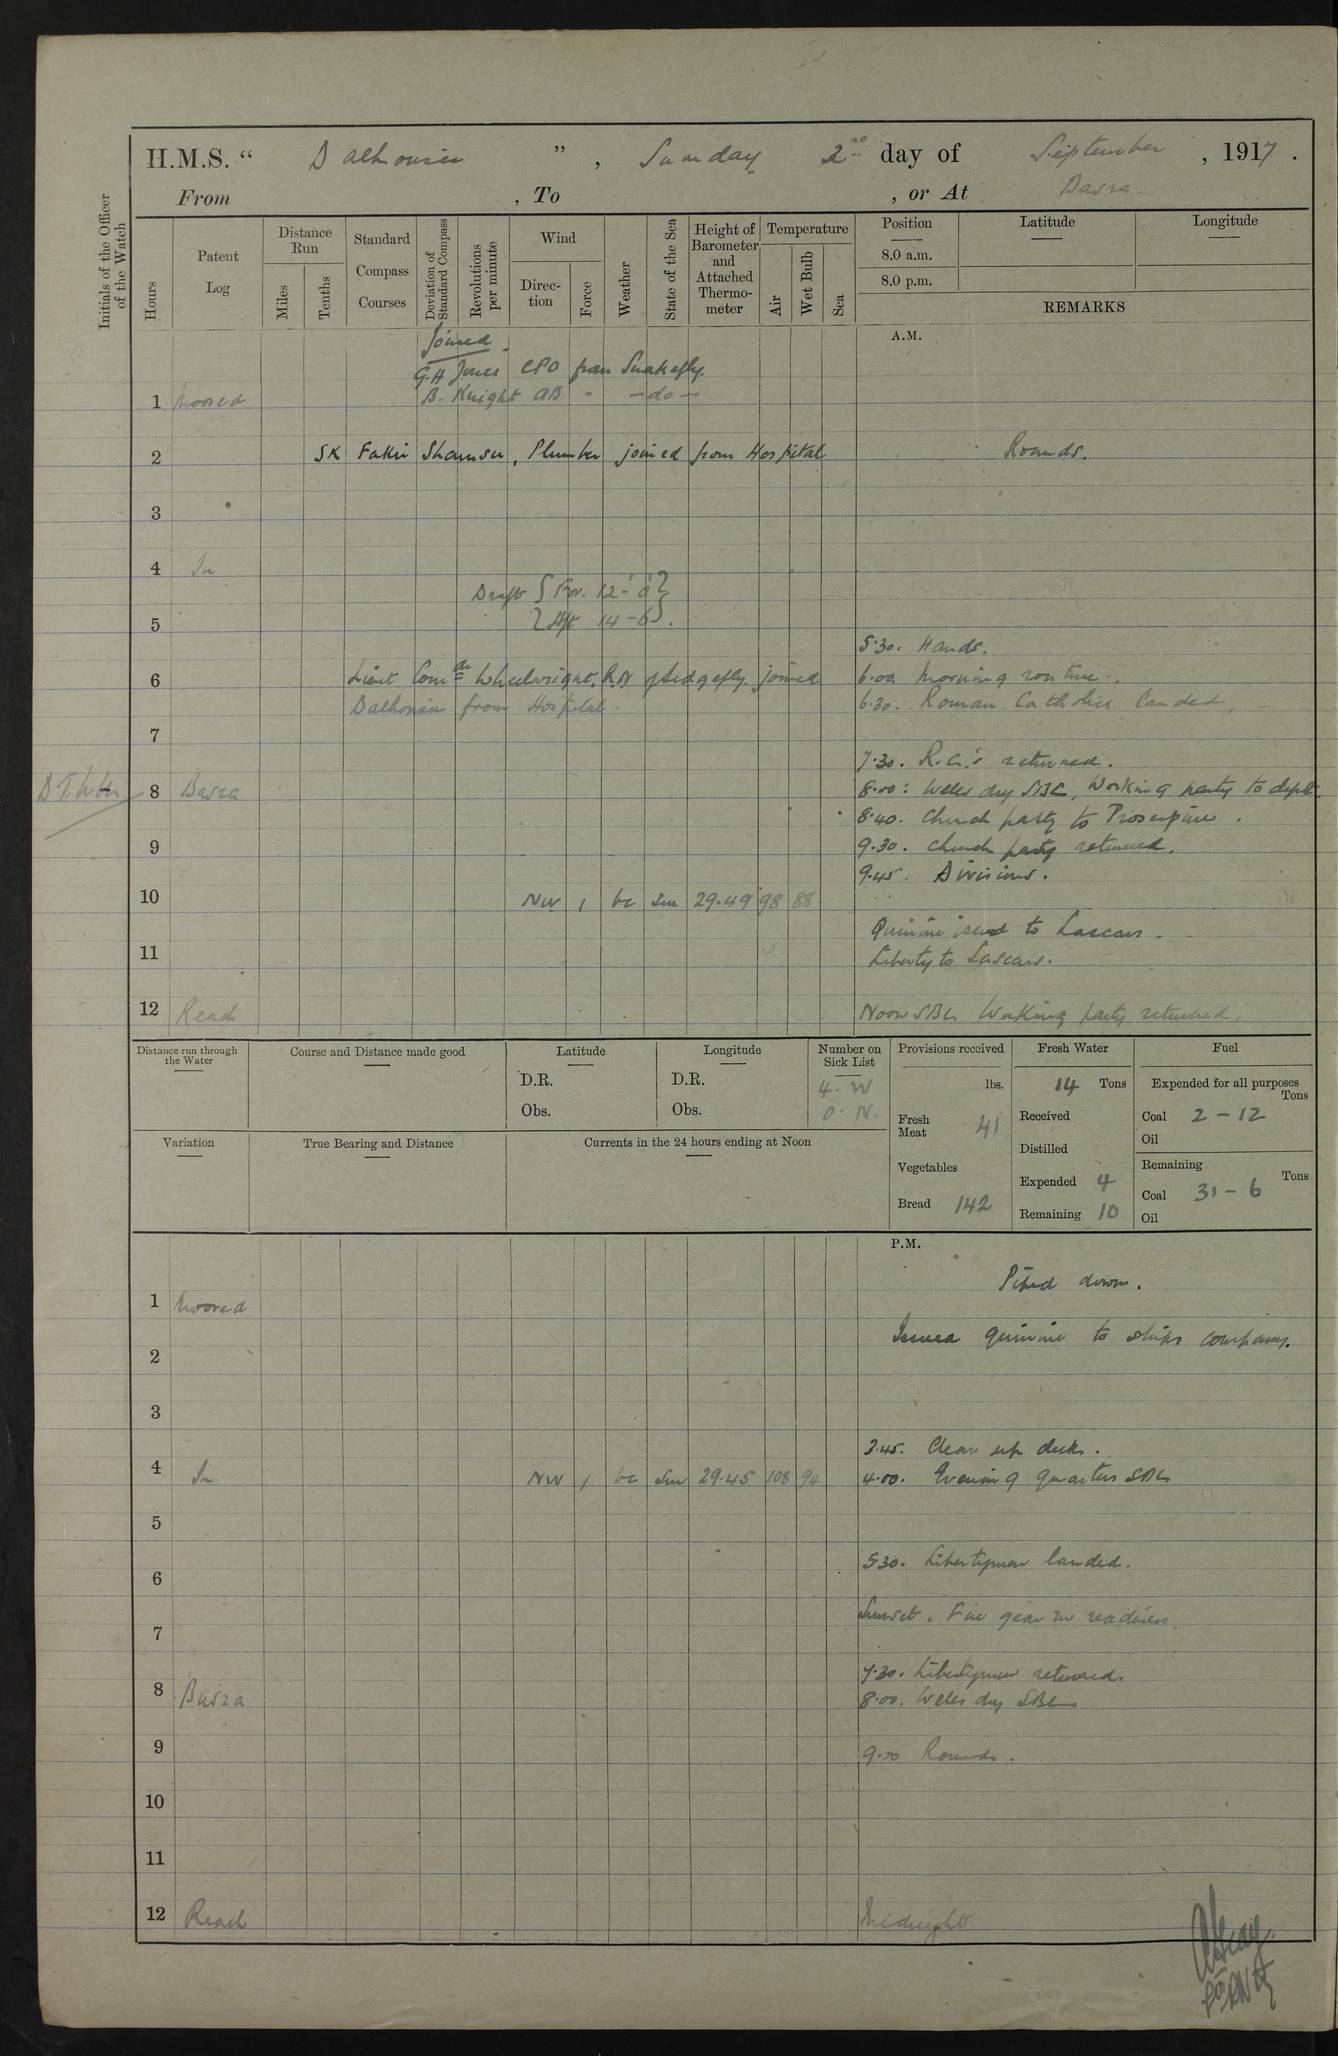 H.M.S. “ Dalhousie ” , Sunday 2nd day of September , 1917 .
From , To , or At Basra
Initials of the Officer of the Watch
Hours
Patent Log
Distance Run
Miles
Tenths
Standard Compass Courses
Deviation of Standard Compass
Revolutions per minute
Wind
Direc-tion
Force
Weather
State of the Sea
Height of Barometer and Attached Thermo-meter
Temperature
Air
Wet Bulb
Sea
Position
8.0 a.m.
8.0 p.m.
Latitude
Longitude
REMARKS
A.M.
Joined.
G.H Jones CPO from Snakefly.
1 Moored B. Knight AB " — do —
2 SK Fakir Shamsu, Plumber joined from Hospital Rounds.
3
4 In
Draft { For. 12'-0" }
5 { Aft 14-6 }.
5.30. Hands.
6 Lieut Comdr Wheelwright, R.N of Sedgefly. joined 6.00 Morning routine.
Dalhousie from Hospital. 6.30. Roman Catholics landed,
7
7.30. R.C.'s returned.
8 Basra 8.00: Wells dry SBC, Working party to dept.
8.40. Church party to Proserpine.
9 9.30. Church party returned.
9.45. Divisions.
10 NW 1 bc Sm 29.49 98 88
Quinine issued to Lascars.
11 Liberty to Lascars.
12 Read Noon SBC Working party returned.
Distance run through the Water
Course and Distance made good
Latitude
D.R.
Obs.
Longitude
D.R.
Obs.
Number on Sick List
4. W
0. N.
Provisions received
lbs.
Fresh Meat 41
Vegetables
Bread 142
Fresh Water
14 Tons
Received
Distilled
Expended 4
Remaining 10
Fuel
Expended for all purposes
Tons
Coal 2 – 12
Oil
Remaining
Tons
Coal 31 – 6
Oil
Variation
True Bearing and Distance
Currents in the 24 hours ending at Noon
P.M.
Piped down.
1 Moored
Issued quinine to ships company.
2
3
3.45. Clear up decks.
4 In NW 1 bc Sm 29.45 108 94 4.00. Evening quarters SBC
5
5.30. Libertymen landed.
6
Sunset. Fire gear in readiness
7
7.30. Libertymen returned.
8 Basra 8.00. Wells dry SBC
9 9.00 Rounds.
10
11
12 Read Midnight